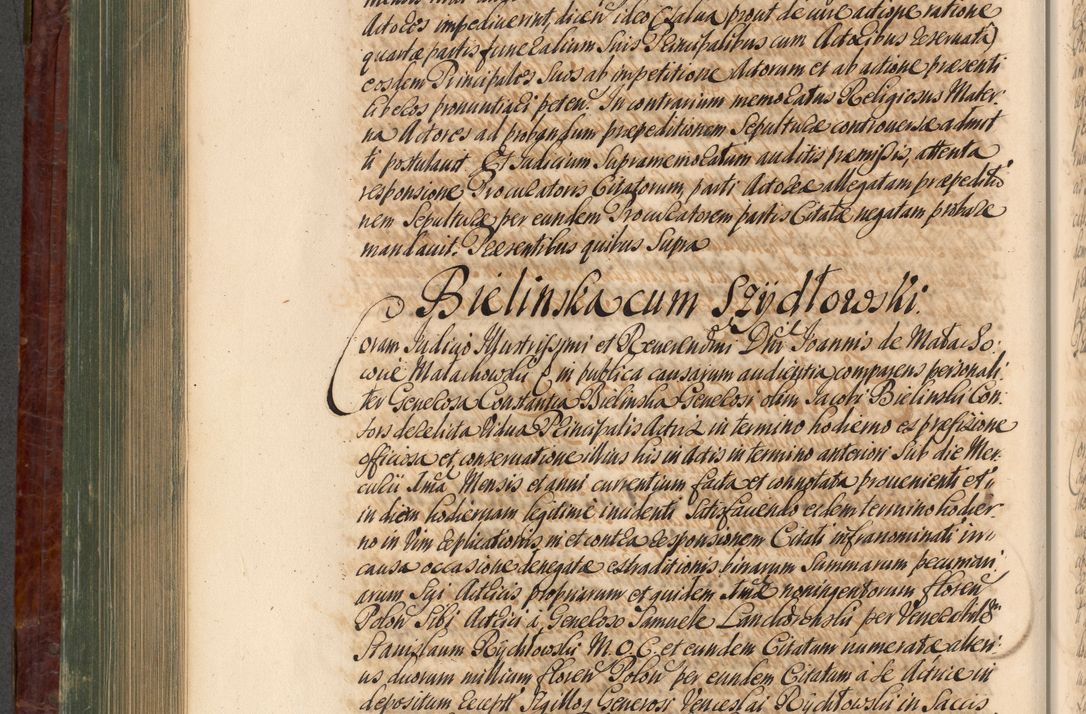 Actores impediverint, dicen ideo Citatus prout de iure actione ratione
quartæ partis funeralium Suis Principalibus cum Actoribus reservata
eosdem Principales Suos ab impetitione Actorum et ab actione præsenti
liberos pronuntiari peten. In contrarium memoratus Religiosus Mater
na Actores ad probandum præpeditionem Sepulturæ controversæ admit
ti postulavit. Et Iudicium Supramemoratum auditis præmissis, attenta
responsione Procuratoris Citatorum, parti Actoreæ allegatam præpeditio
nem Sepulturæ per eundem Procuratorem partis Citatæ negatam probare
mandavit. Præsentibus quibus Supra
Bielinska cum Szÿdłowski.
Coram Iudicio Illustrissimi et Reverendmi Dni Ioannis de Malacho
wice Małachowski in publica causarum audientia comparens personali
ter Generosa Constantia Bielinska Generosi olim Jacobi Bielinski Con
sors derelicta Vidua Principalis Actrix in termino hodierno ex præfixione
officiosa et conservatione illius his in Actis in termino anteriori Sub die Mer
curii Ima Mensis et anni currentium facta et connotata provenienti et
in diem hodiernam legitime incidenti Satisfaciendo eidem termino hodier
no in Vim replicationis in et contra responsionem Citati infranominati in
causa occasione denegatæ extraditionis binarum Summarum pecuniari
arum Sui Actricis propriarum et quidem Imæ noningentorum floren
Polon Sibi Actrici à Generoso Samuele per Venerabilem
Stanislaum Rÿchłowski M. O. C. et eundem Citatum numeratæ alteri
us, duorum millium floren Polon per eundem Citatum à Se Actrice in
depositum recept Sigillo Generosi Venceslai Rÿchłowski in Saccis